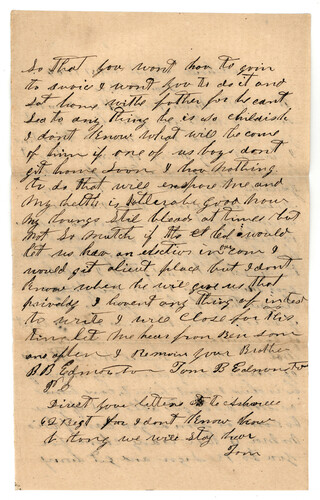 So that you wont hav to goin
to survic I wont you to do it and
Set home with father for he cant
See to any thing he is so childish
I dont Know what will be come
of him if one of us boys dont
git home Soon I hav nothing
to do that will expose me and
My helth is tolerabe good now
My loungs Stil bleads at times but
Not So mutch if the would
let us hav an election in our com I
would git a place but I dont
Know when he will give us that
I havent any thing of intrest
to write I will Close for this
time let Me hear from Ben soon
and often I Remain your Brother
B B Edmonston Tom B Edmonston
Direct your letters to
62 Regt for I dont Know how
long we will Stay hear
Tom